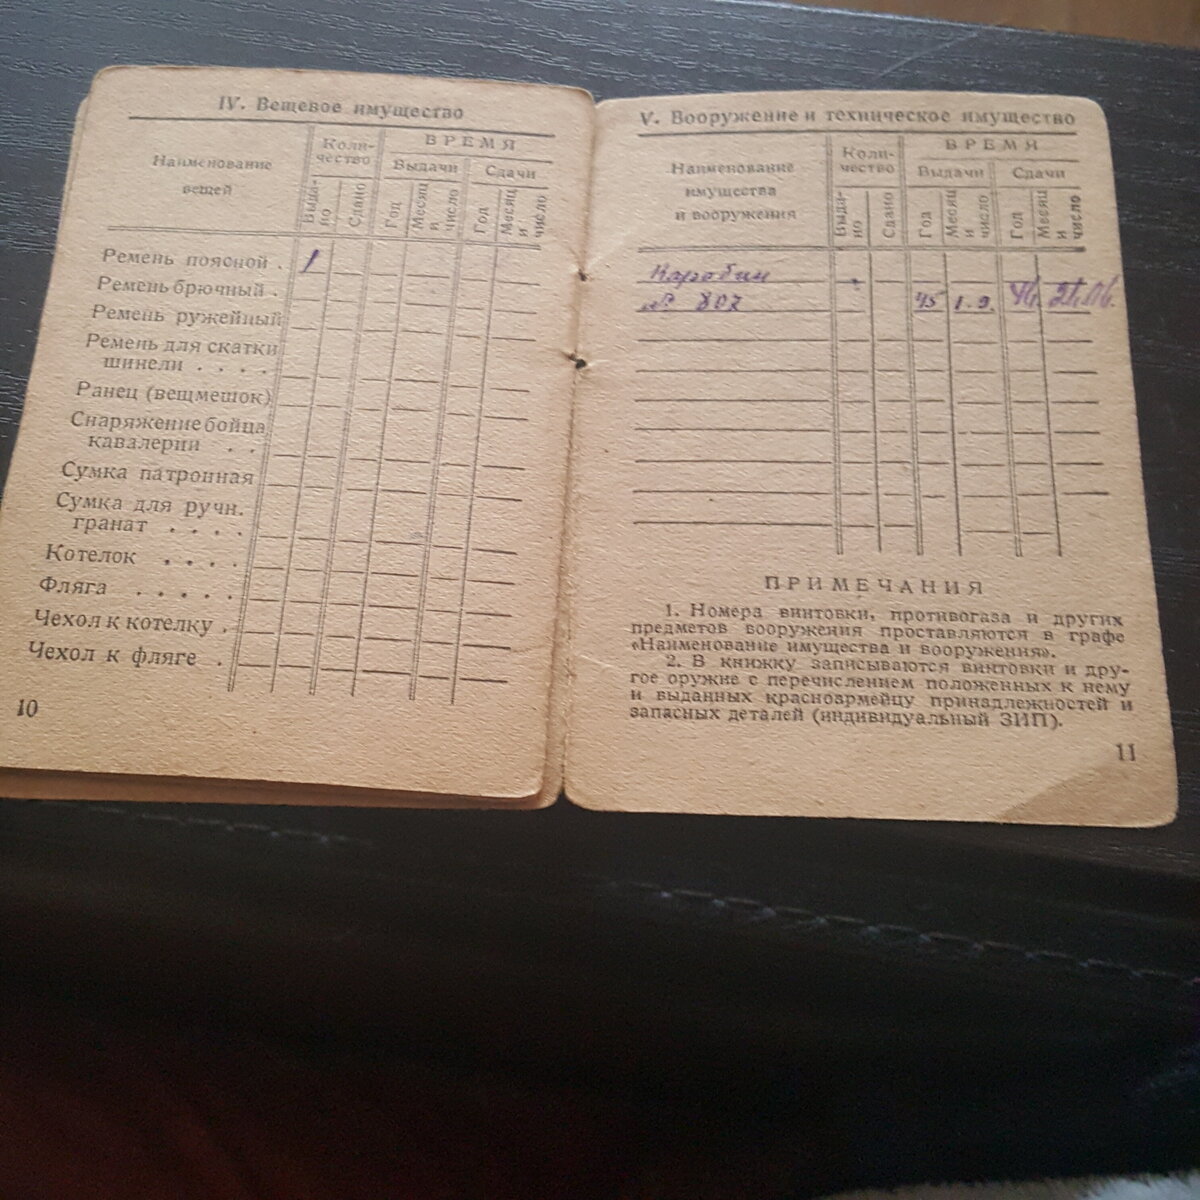 IV. Вещевое имущество
Наименование
вещей
Коли-
чество
ВРЕМЯ
Выдачи
Сдачи
Выда-
но
Сдано
Год
Месяц
и
число
Год
Месяц
и
число
Ремень поясной . 1
Ремень брючный .
Ремень ружейный
Ремень для скатки
шинели . . . .
Ранец (вещмешок)
Снаряжение бойца
кавалерии . .
Сумка патронная
Сумка для ручн.
гранат . . . .
Котелок . . . .
Фляга . . . . .
Чехол к котелку .
Чехол к фляге .
10
V. Вооружение и техническое имущество
Наименование
имущества
и вооружения
Коли-
чество
ВРЕМЯ
Выдачи
Сдачи
Выда-
но
Сдано
Год
Месяц
и
число
Год
Месяц
и
число
Карабин
№ 807 45 1.9. 46. 21.06.
ПРИМЕЧАНИЯ
1. Номера винтовки, противогаза и других
предметов вооружения проставляются в графе
«Наименование имущества и вооружения».
2. В книжку записываются винтовки и дру-
гое оружие с перечислением положенных к нему
и выданных красноармейцу принадлежностей и
запасных деталей (индивидуальный ЗИП).
11